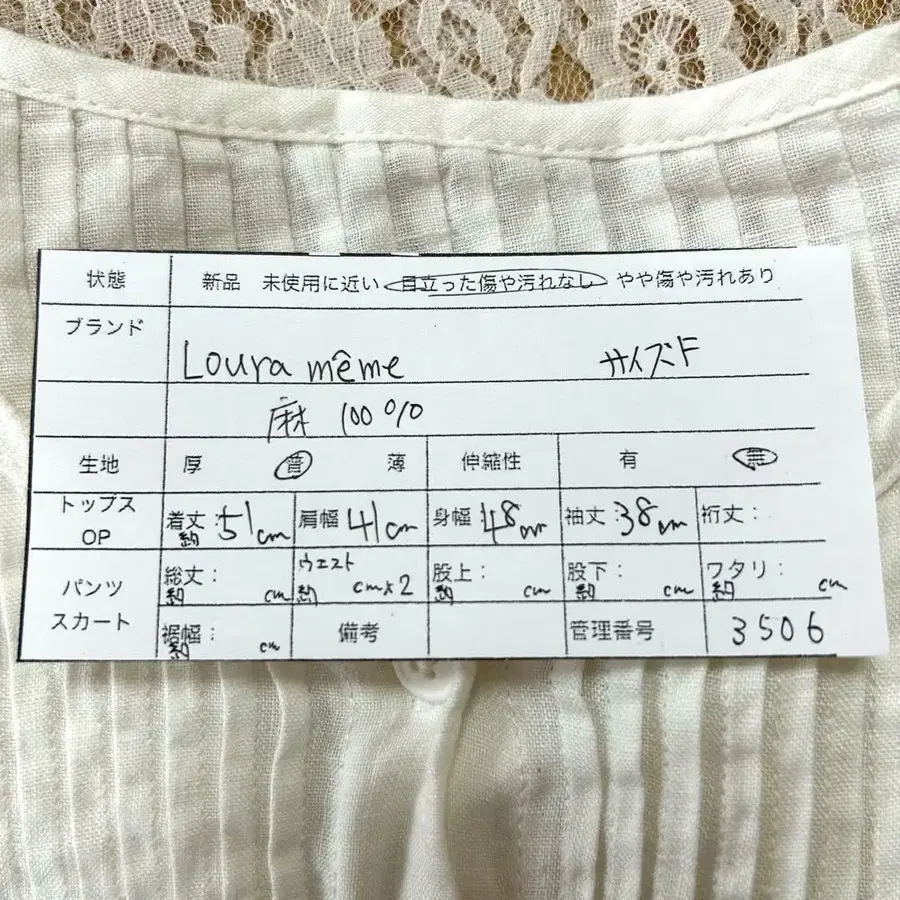 状態 新品 未使用に近い 目立った傷や汚れなし やや傷や汚れあり
ブランド
Loura même サイズF
麻 100%
生地 厚 普 薄 伸縮性 有 無
トップス OP 着丈:約51cm 肩幅41cm 身幅:48cm 袖丈:38cm 裄丈:
パンツ スカート 総丈:約 cm ウエスト約 cm×2 股上:約 cm 股下:約 cm ワタリ:約 cm
裾幅:約 cm 備考 管理番号 3506